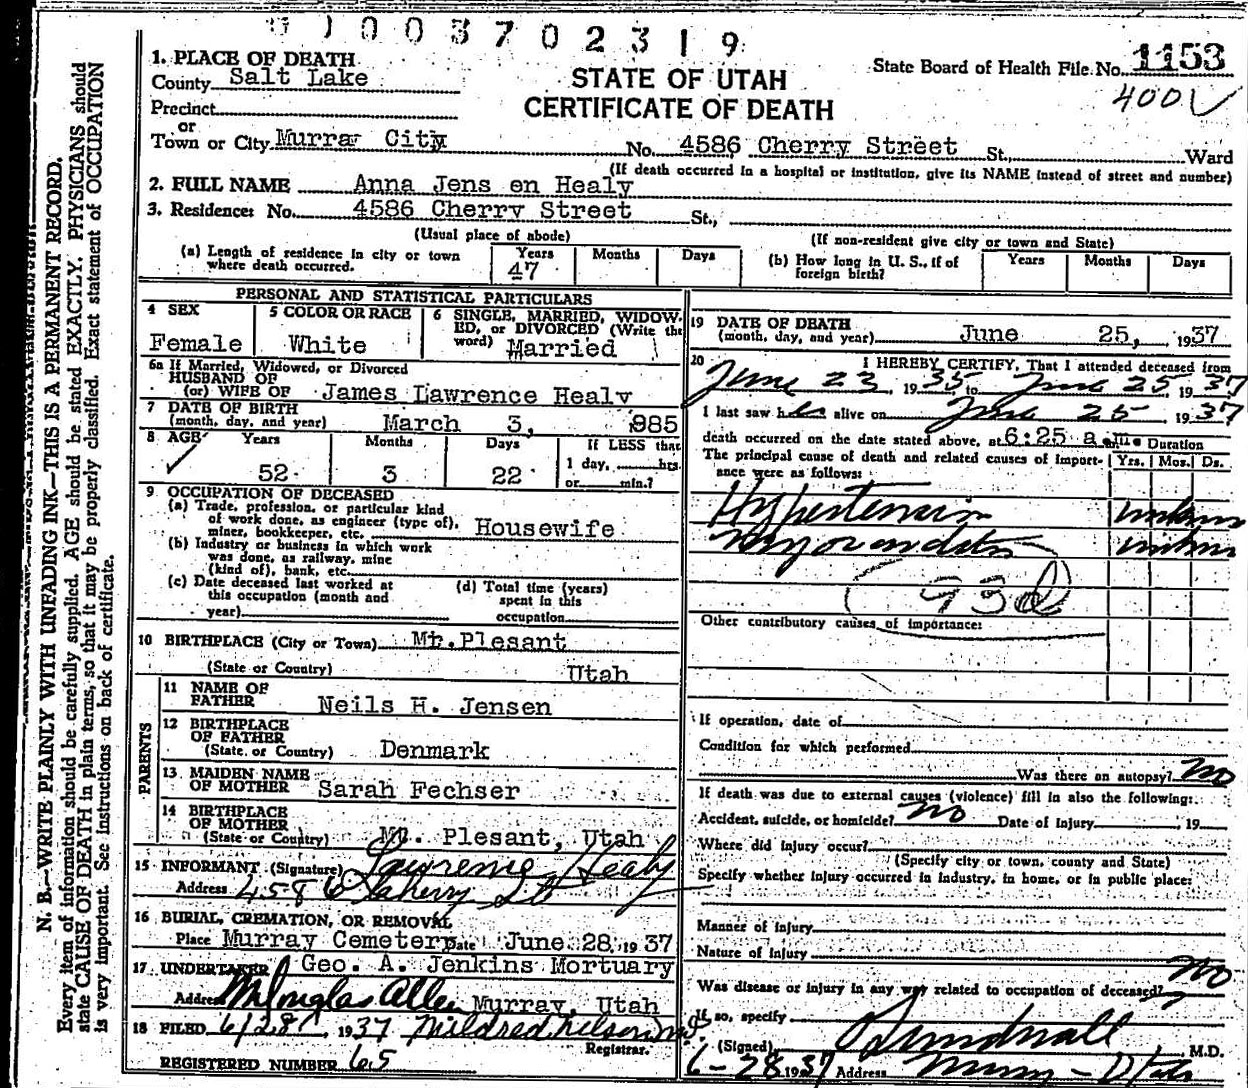 1003702319
1. PLACE OF DEATH
County Salt Lake
STATE OF UTAH
CERTIFICATE OF DEATH
State Board of Health File No. 1153
400
Precinct
or
Town or City Murray City No. 4586 Cherry Street St., Ward
(If death occurred in a hospital or institution, give its NAME instead of street and number)
2. FULL NAME Anna Jens en Healy
3. Residence: No. 4586 Cherry Street St.,
(Usual place of abode) (If non-resident give city or town and State)
(a) Length of residence in city or town where death occurred. Years 47 Months Days
(b) How long in U. S., if of foreign birth? Years Months Days
PERSONAL AND STATISTICAL PARTICULARS
4 SEX Female
5 COLOR OR RACE White
6 SINGLE, MARRIED, WIDOWED, or DIVORCED (Write the word) Married
6a If Married, Widowed, or Divorced
HUSBAND OF
(or) WIFE OF James Lawrence Healy
7 DATE OF BIRTH
(month, day, and year) March 3, 885
8 AGE Years 52 Months 3 Days 22 If LESS than 1 day, hrs. or min.?
9 OCCUPATION OF DECEASED
(a) Trade, profession, or particular kind of work done, as engineer (type of), miner, bookkeeper, etc. Housewife
(b) Industry or business in which work was done, as railway, mine (kind of), bank, etc.
(c) Date deceased last worked at this occupation (month and year)
(d) Total time (years) spent in this occupation
10 BIRTHPLACE (City or Town) Mt.Plesant
(State or Country) Utah
PARENTS
11 NAME OF FATHER Neils H. Jensen
12 BIRTHPLACE OF FATHER
(State or Country) Denmark
13 MAIDEN NAME OF MOTHER Sarah Fechser
14 BIRTHPLACE OF MOTHER
(State or Country) Mt. Plesant, Utah
15 INFORMANT (Signature) Lawrence Healy
Address 4586 Cherry St
16 BURIAL, CREMATION, OR REMOVAL
Place Murray Cemetery Date June 28, 1937
17 UNDERTAKER Geo. A. Jenkins Mortuary
Address M Douglas Allen Murray, Utah
18 FILED 6/28/ 1937 Mildred Nelson
Registrar.
REGISTERED NUMBER 65
19 DATE OF DEATH
(month, day, and year) June 25, 1937
20 I HEREBY CERTIFY, That I attended deceased from
June 23, 1935, to June 25, 1937
I last saw her alive on June 25, 1937
death occurred on the date stated above, at 6:25 a.m.
The principal cause of death and related causes of importance were as follows:
Duration Yrs. Mos. Ds.
Hypertension unknown
Myocarditis unknown
93d
Other contributory causes of importance:
If operation, date of
Condition for which performed
Was there an autopsy? No
If death was due to external causes (violence) fill in also the following:
Accident, suicide, or homicide? No Date of Injury , 19
Where did injury occur?
(Specify city or town, county and State)
Specify whether injury occurred in industry, in home, or in public place:
Manner of injury
Nature of Injury
Was disease or injury in any way related to occupation of deceased? No
If so, specify
(Signed) M.D.
6-28 1937 Address Murray Utah
N. B.—WRITE PLAINLY WITH UNFADING INK—THIS IS A PERMANENT RECORD.
Every item of information should be carefully supplied. AGE should be stated EXACTLY. PHYSICIANS should
state CAUSE OF DEATH in plain terms, so that it may be properly classified. Exact statement of OCCUPATION
is very important. See instructions on back of certificate.